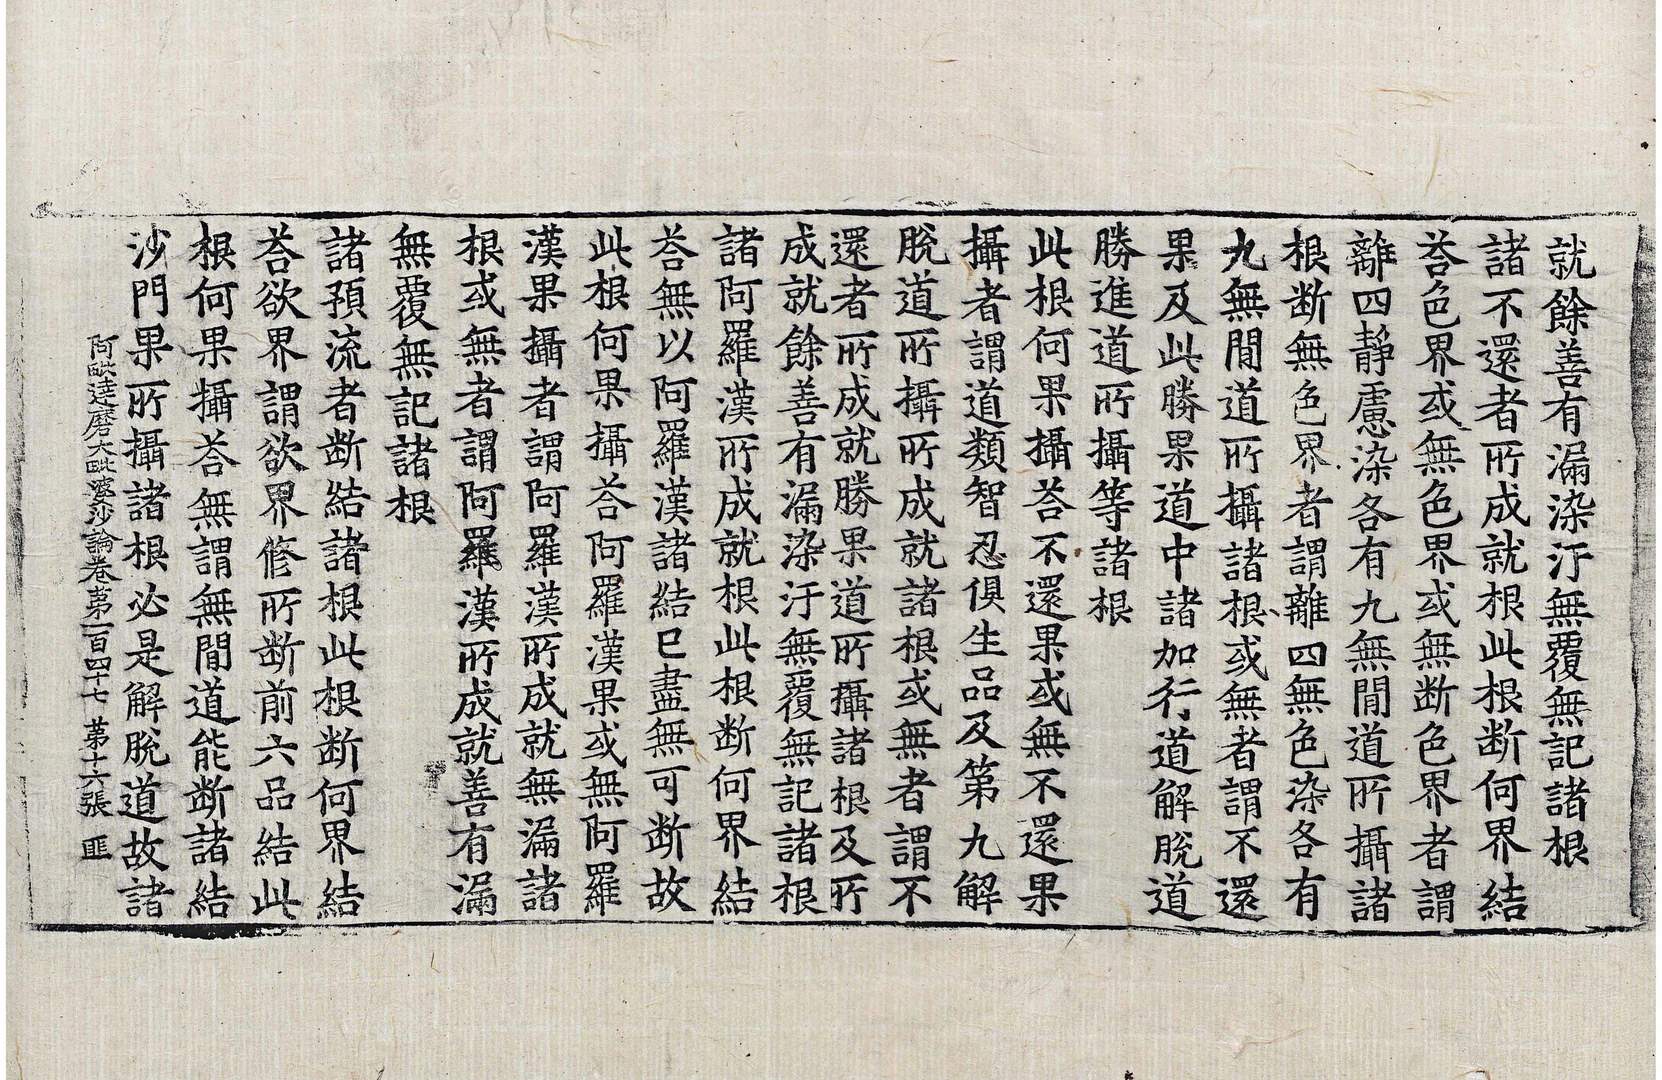 就餘善有漏染汙無覆無記諸根
諸不還者所成就根此根断何界結
荅色界或無色界或無断色界者謂
離四静慮染各有九無間道所攝諸
根断無色界者謂離四無色染各有
九無間道所攝諸根或無者謂不還
果及此勝果道中諸加行道解脫道
勝進道所攝等諸根
此根何果攝荅不還果或無不還果
攝者謂道類智忍俱生品及第九解
脫道所攝所成就諸根或無者謂不
還者所成就勝果道所攝諸根及所
成就餘善有漏染汙無覆無記諸根
諸阿羅漢所成就根此根断何界結
荅無以阿羅漢諸結已盡無可断故
此根何果攝荅阿羅漢果或無阿羅
漢果攝者謂阿羅漢所成就無漏諸
根或無者謂阿羅漢所成就善有漏
無覆無記諸根
諸預流者断結諸根此根断何界結
荅欲界謂欲界修所断前六品結此
根何果攝荅無謂無間道能断諸結
沙門果所攝諸根必是解脫道故諸
阿毗達磨大毗婆沙論卷第一百四十七 第十六張 匪